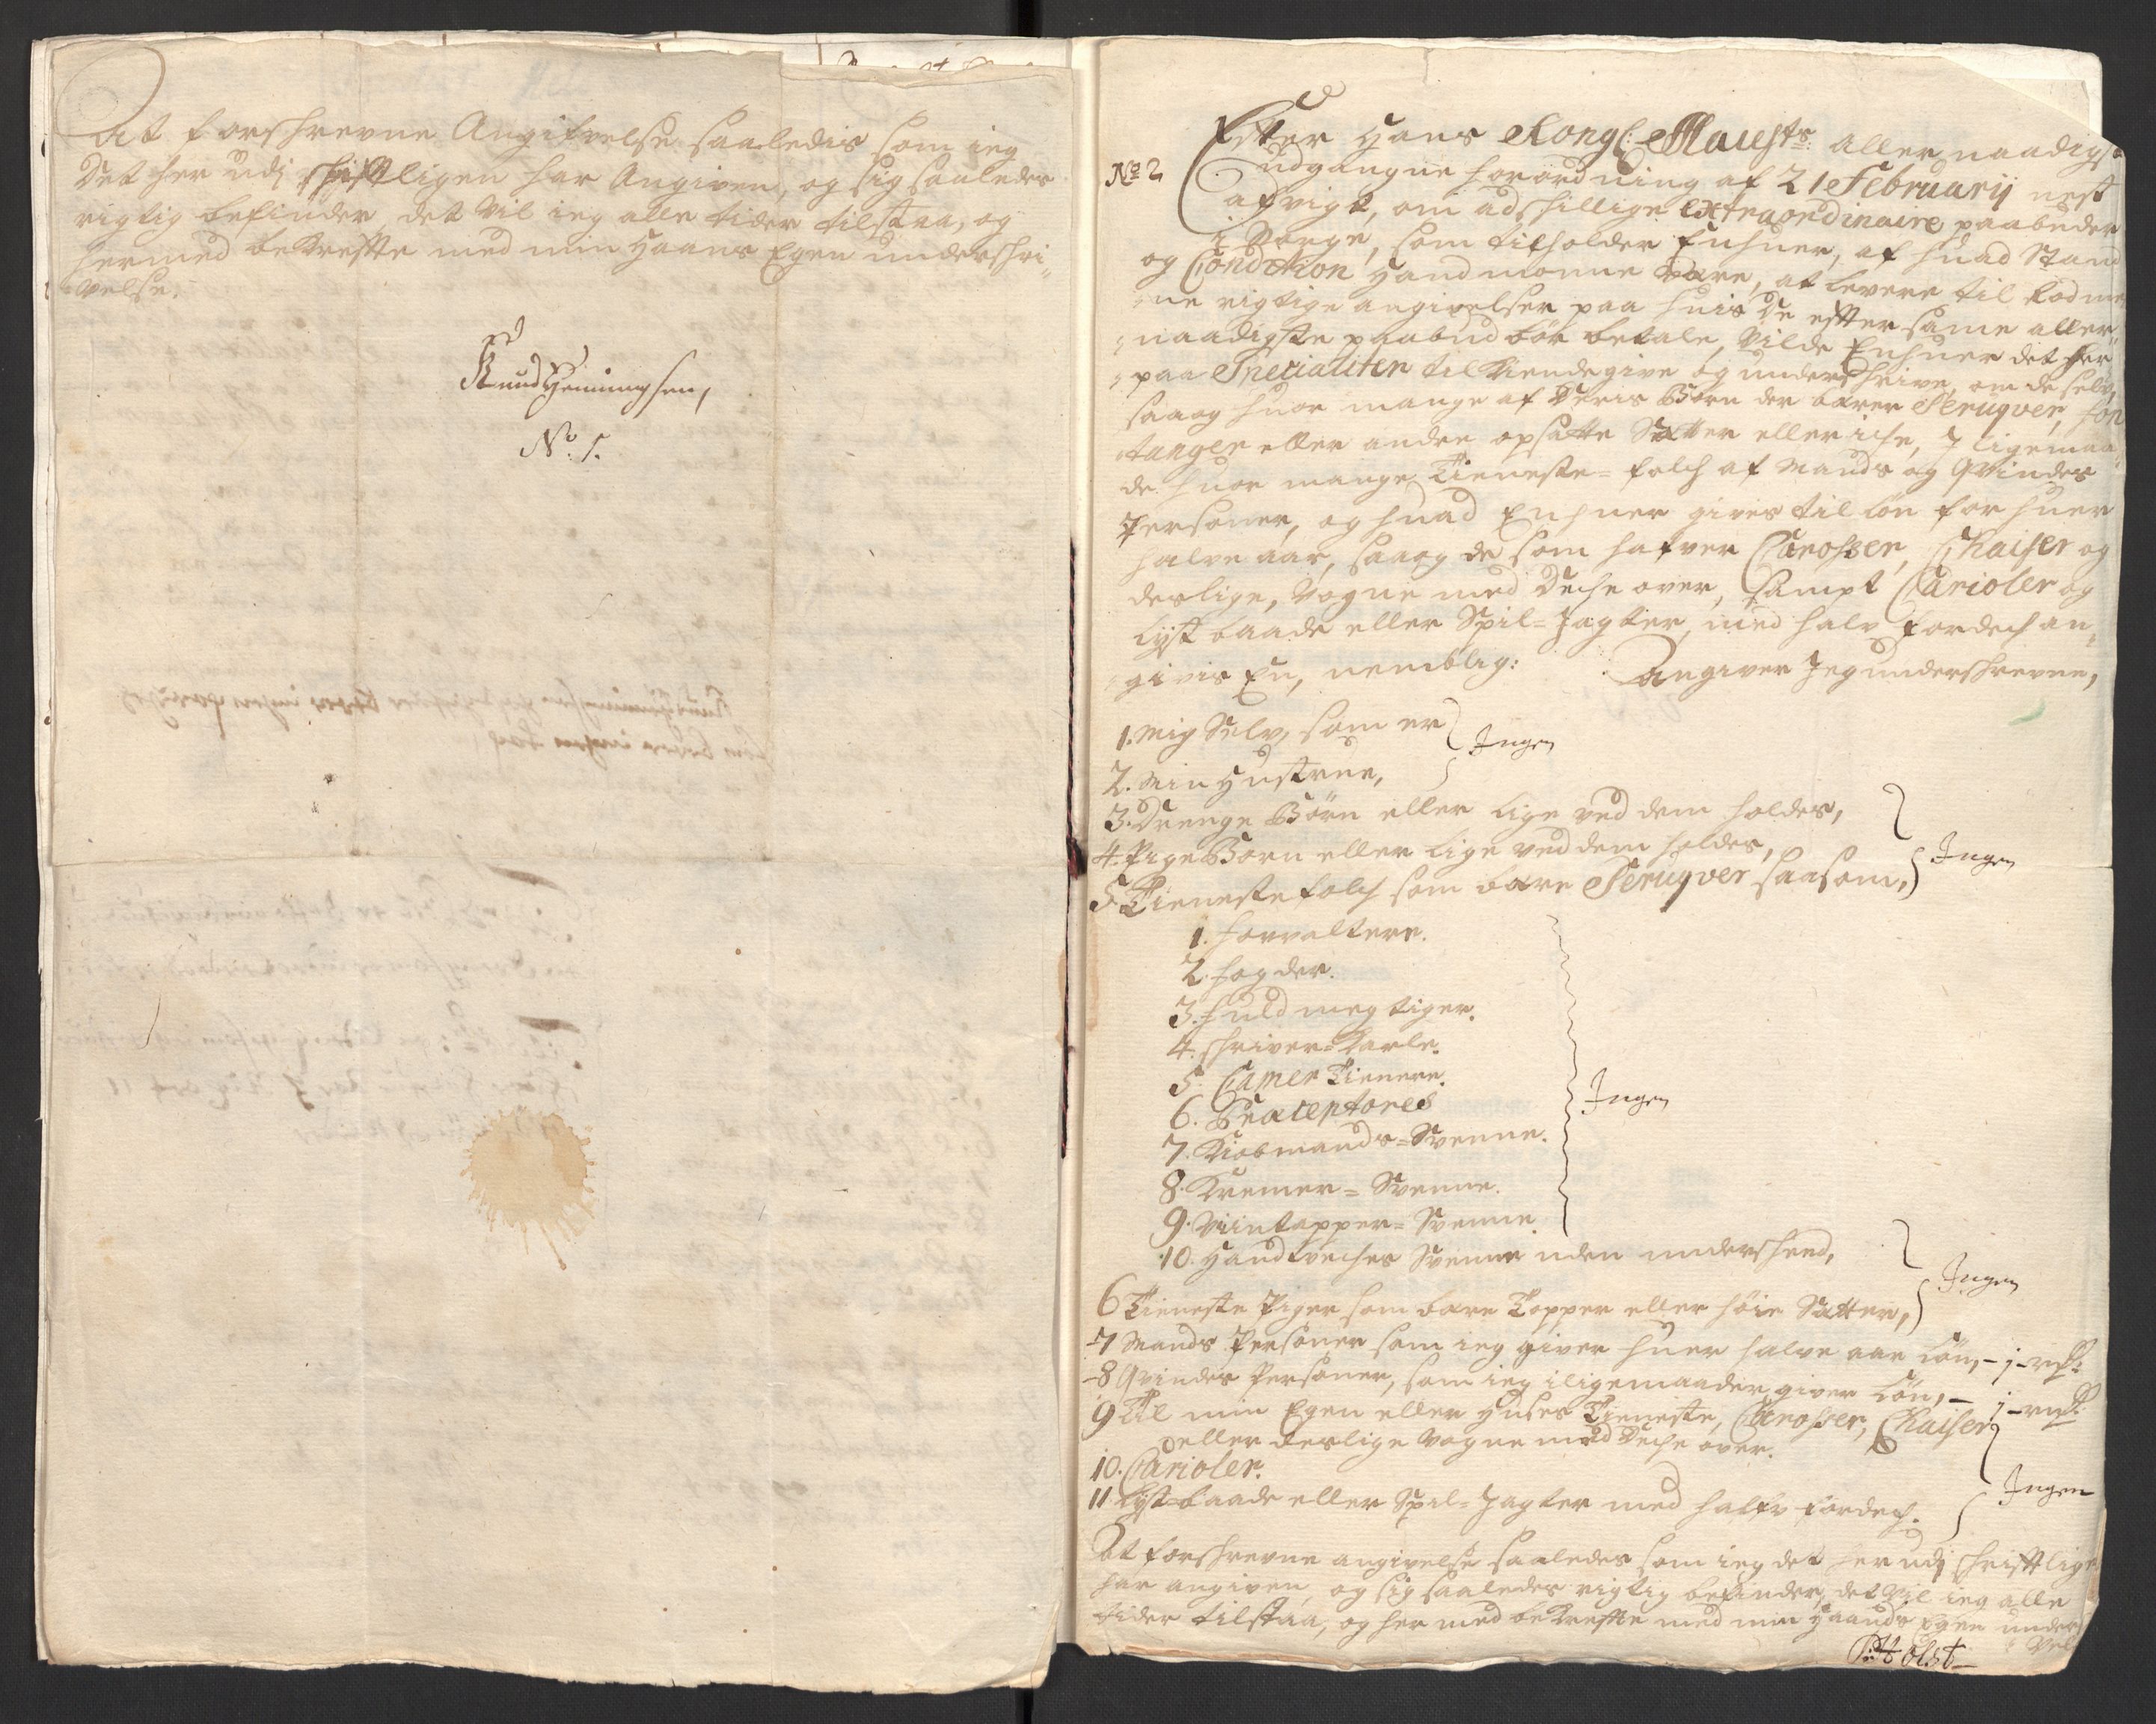 At forschrevne Angifvelse saaledis som ieg
Det her udj schrifftligen har Angiven, og sig saaledes
rigtig befinder, det vil ieg alle tider tilstaa, og
hermed bekreffte med min Haands Egen underschri-
velse.
Knud Henningsen,
No. 1.
No 2
Effter Hans Kongl: Mauests: aller naadigst
udgangne forordning af 21 Februarij nest
afvigt, om adschillige extraordinaire paabuder
i Norge, som tilholder Enhuer, af huad Stand
og Condition Hand monne være, at levere til Kodme
ne rigtige angivelser paa huis De effter same aller
naadigste paabud bør betale, vilde Enhuer det her
paa Specialiter tilkiendegive og underschrive, om de selv,
saaog huor mange af Deris Børn der bærer Peruqver, fon
tanger eller anden opsatte Sætter eller iche, J ligemaa
de huor mange Tieneste-folch af Mands og Qvindes
Personer, og huad Enhuer gives til løn for huer
halve aar, saaog de som hafver Carosser, Chaiser og
deslige, Vogne med Deche over, sampt Carioler og
Lyst baade eller Spil-Jagter, med halv fordech an-
givis En, nemblig:
Angiver Jeg underschrevne,
1. Mig Selv, som er
Ingen
2. Min Hustrue,
3. Drenge Børn eller lige ved dem holdes,
4. Pige Børn eller lige ved dem holdes,
Ingen
5. Tienestefolch som bære Peruqver saasom,
1. Forvaltere.
2. Fogder.
3. Fuldmegtiger.
4. Schriver-Karle.
5. Camer Tienere.
6. Præceptores
Ingen
7. Kiobmands-Svenne.
8. Kremer-Svenne.
9. Viintapper-Svenne.
10. Handtverches Svenne uden underscheed,
Ingen
6 Tieneste Piger som bære Topper eller høie Sætter,
7 Mands Personer som ieg giver huer halve aar Løn, - j - rdr:
8 Qvindes Personer, som ieg iligemaader giver Løn, - j - rdr:
9 Til min Egen eller Huses Tieneste, Carosser, Chaiser
eller deslige Vogne med Deche over.
10. Carioler.
Ingen
11. Lyst-baade eller Spil-Jagter med halfv fordech.
At forschrevne angivelse saaledes som ieg det her udj schrifftlige
har angiven, og sig saaledes rigtig befinder, det vil ieg alle
tider tilstaa, og her med bekreffte med min Haands Egen under
vel
P: Holst